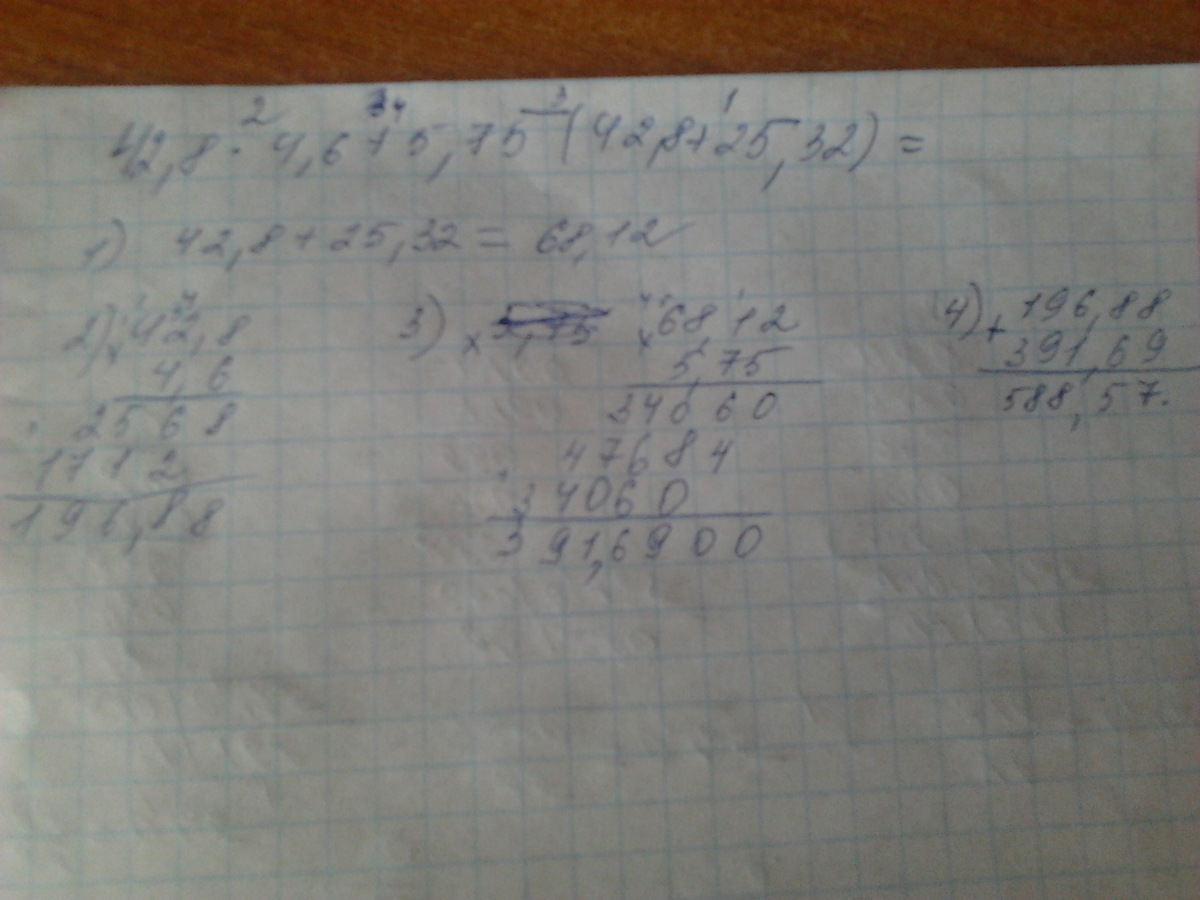 2 34 3 1
42,8 · 4,6 + 5,75 (42,8+25,32) =
1) 42,8+25,32 = 68,12
2) × 42,8
4,6
2568
1712
196,88
3) × 5,75 × 68,12
5,75
34060
47684
34060
391,6900
4) + 196,88
391,69
588,57.